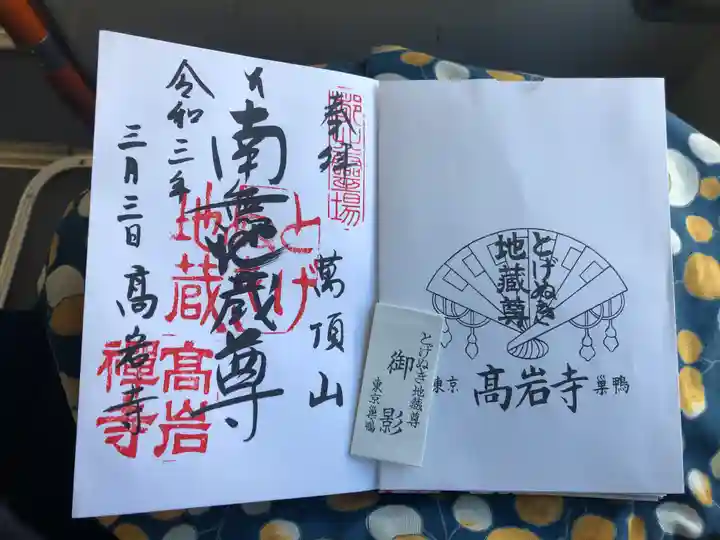 奉拝
萬頂山
南無地蔵尊
令和三年
三月三日
高岩寺
とげぬき
地蔵
高岩
禅寺
とげぬき
地蔵尊
東京
高岩寺
巣鴨
とげぬき地蔵尊
御影
東京巣鴨